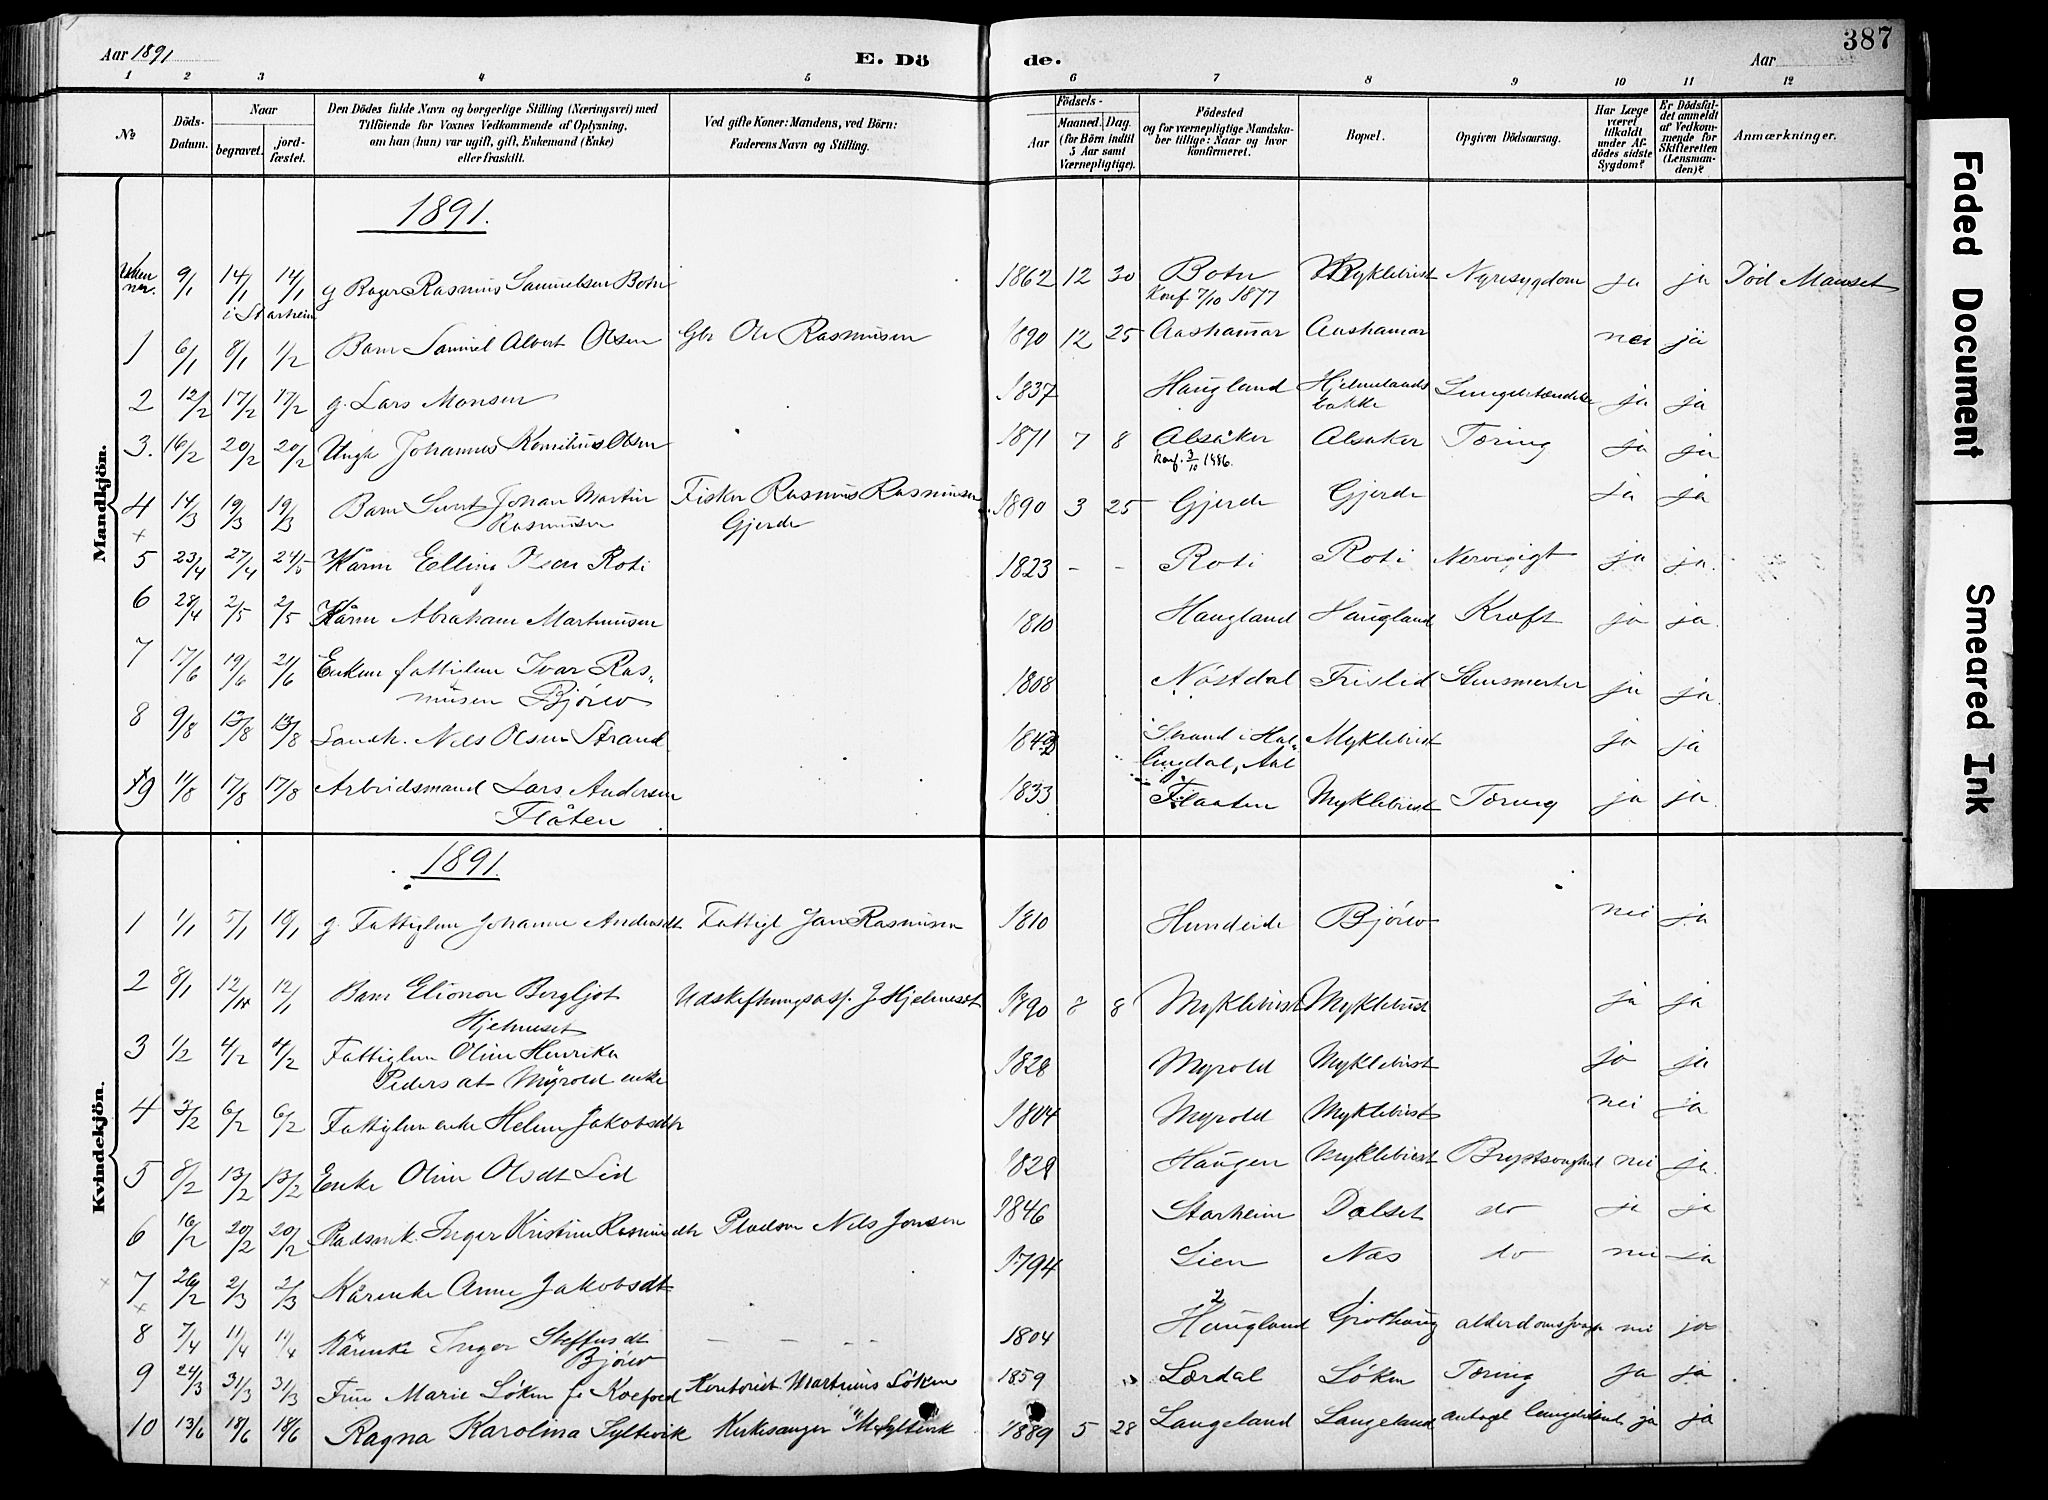 Aar 1891
E. Dö
de.
Aar
387
1 2 3 4 5 6 7 8 9 10 11 12
No
Döds-Datum.
Naar
begravet.
jord-fæstet.
Den Dödes fulde Navn og borgerlige Stilling (Næringsvei) med
Tilföiende for Voxnes Vedkommende af Oplysning,
om han (hun) var ugift, gift, Enkemand (Enke)
eller fraskilt.
Ved gifte Koner: Mandens, ved Börn:
Faderens Navn og Stilling.
Födsels-
Aar
Maaned. Dag.
(for Börn indtil
5 Aar samt
Værnepligtige).
Födested
og for værnepligtige Mandska-
ber tillige: Naar og hvor
konfirmeret.
Bopæl.
Opgiven Dödsaarsag.
Har Læge
været
tilkaldt
under Af-
dödes sidste
Sygdom?
Er Dödsfal-
det anmeldt
af Vedkom-
mende for
Skifteretten
(Lensman-
den)?
Anmærkninger.
Mandkjön.
1891.
9/1 14/1 14/1 g Rasmus Samuelsen Botn 1862 12 30 Botn Myklebust Nyresygdom ja ja Död Manset
i Starheim
Konf 7/10 1877
1 6/1 8/1 1/2 Barn Samuel Albert Olsen Gbr Ole Rasmusen 1890 12 25 Aashamar Aashamar nei ja
2 12/2 17/2 17/2 g. Lars Monsen 1837 Haugland Hjelmelands ja ja
bakke
3. 16/2 20/2 20/2 Ungk Johannes Kornelius Olsen 1871 7 8 Alsaker Alsaker Tæring ja ja
Konf. 3/10 1886.
4 14/3 19/3 19/3 Barn Johan Martin Fisker Rasmus Rasmusen 1890 3 25 Gjerde Gjerde ja ja
Rasmusen Gjerde
5 23/4 27/4 24/5 Kårm Elling Roti 1823 - - Roti Roti ja ja.
6 28/4 2/5 2/5 Kårm Abraham Martinusen 1810 Haugland Haugland Kræft ja ja.
7 17/6 19/6 21/6 Enkem fattiglem Ivar Ras- 1808 Nöstdal Frislid ja ja.
musen Björlo
8 9/8 13/8 13/8 Landh. Nils Olsen Strand Strand i Hal- Myklebust ja ja
lingdal, Aal
9 11/8 17/8 17/8 Arbeidsmand Lars Andersen 1833 Flaaten Myklebust Tæring ja ja.
Flåten
Kvindekjön.
1891.
1 1/1 5/1 10/1 g. Fattiglem Johanne Andersdtr Fattigl Jan Rasmusen 1810 Hundeide Björlo nei ja
2 8/1 12/1 12/1 Barn Elionora Bergljot Udskiftningsass. J Hjelmeset 1890 8 8 Myklebust Myklebust ja ja
Hjelmeset
3 1/2 4/2 4/2 Fattiglem Oline Henrika 1828 Myrold Myklebust ja ja
Pedersdt Myrold enke
4 3/2 6/2 6/2 Fattiglem enke Helene Jakobsdtr 1804 Myrold Myklebust nei ja
5 8/2 13/2 13/2 Enke Oline Olsdt Lid Haugen Myklebust nei ja.
6 16/2 20/2 20/2 Pladsmk. Inger Kristine Rasmusdtr Pladsm Nils Jonsen 1846 Starheim Dalset do ja ja
7 26/2 2/3 2/3 Kårenke Anne Jakobsdt 1794 Lien Nas do nei ja
8 7/4 11/4 11/4 Kårenke Inger Steffensdt 1804 Haugland Grothaug nei ja
Björlo
9 24/3 31/3 31/3 Fru Marie Löken f. Koefoed Kontorist Martinius Löken 1859 Lærdal Löken Tæring ja ja
10 13/6 18/6 18/6 Ragna Karolina Syltevik Kirkesanger M Syltevik 1889 5 28 Langeland Langeland ja ja
Faded Document
Smeared Ink